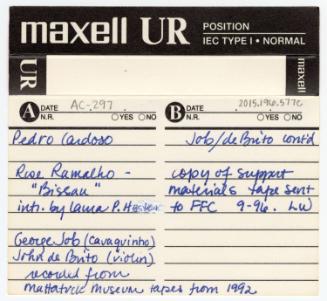 maxell UR POSITION
IEC TYPE I • NORMAL
UR
maxell
A DATE AC-297
N.R. OYES ONO
Pedro Cardoso
Rose Ramalho -
"Bissau"
intr. by Laura P.
George Job (cavaquinho)
John de Brito (violin)
recorded from
Mattatuck Museum tapes from 1992
B DATE 2015.196.577c
N.R. OYES ONO
Job/de Brito cont'd
copy of support
materials tape sent
to FFC 9-96. LW